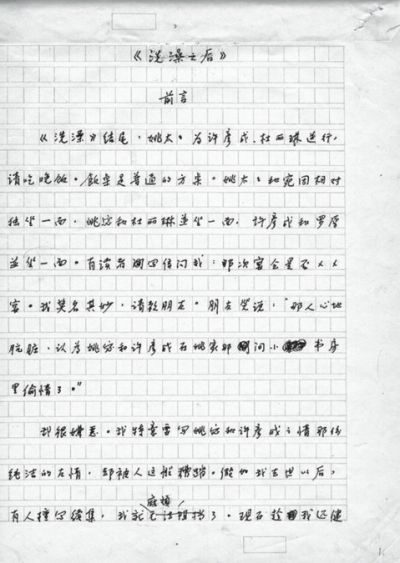 《洗澡之后》
前言
《洗澡》结尾,姚太々为许彦成、杜丽琳送行,
请吃晚饭。饭桌是普通的方桌。姚太々和宛英相对
独坐一面,姚宓和杜丽琳並坐一面,许彦成和罗厚
並坐一面。有读者写信问我:那次宴会是否
宴。我莫名其妙,请教朋友。朋友笑说:“那人心地
肮脏,认为姚宓和许彦成在姚家那间小书房
里偷情了。”
我很嫌恶。我特意要写姚宓和许彦成之情那份
纯洁的友情,却被人这般糟蹋。假如我去世以后,
有人擅写续集,我就麻烦了。现在趁我还健